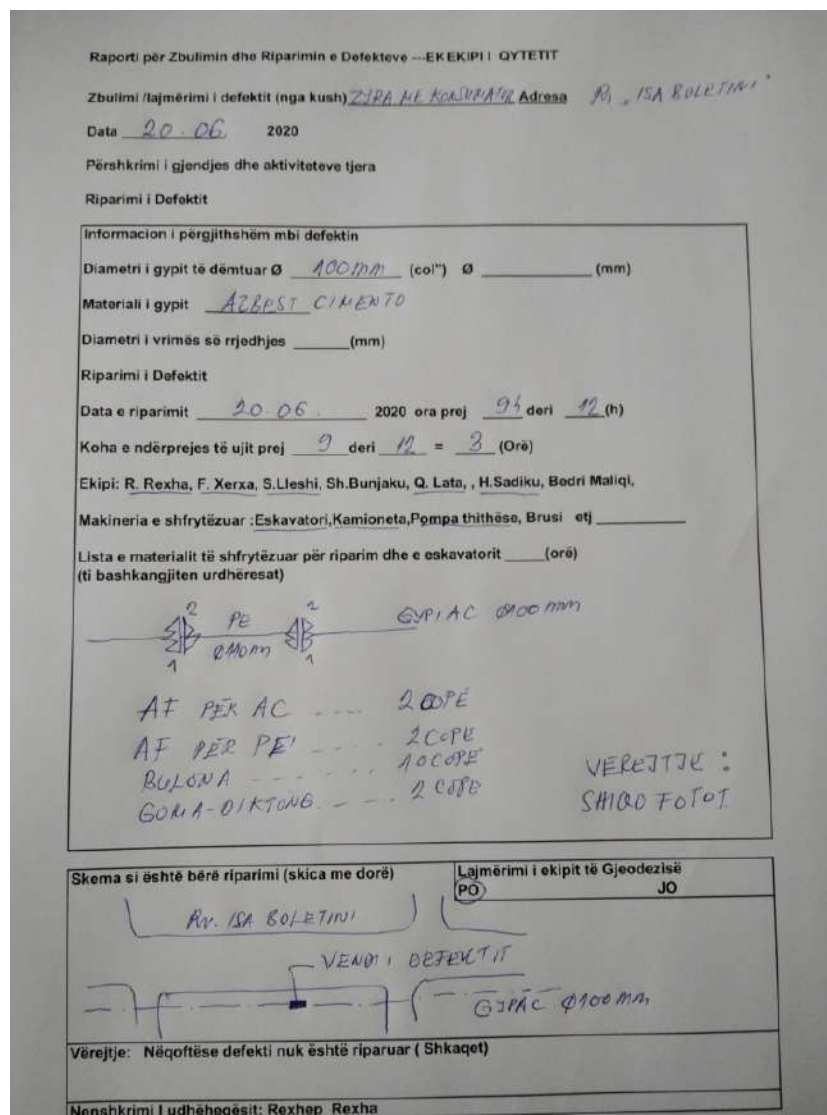 Raporti për Zbulimin dhe Riparimin e Defekteve ---EKEKIPI I QYTETIT
Zbulimi /lajmërimi i defektit (nga kush) ZYRA ME KONSUMATOR Adresa Rr. "ISA BOLETINI"
Data 20.06. 2020
Përshkrimi i gjendjes dhe aktiviteteve tjera
Riparimi i Defektit
Informacion i përgjithshëm mbi defektin
Diametri i gypit të dëmtuar Ø 100mm (col") Ø ________ (mm)
Materiali i gypit AZBEST CIMENTO
Diametri i vrimës së rrjedhjes ______(mm)
Riparimi i Defektit
Data e riparimit 20.06. 2020 ora prej 9h deri 12 (h)
Koha e ndërprejes të ujit prej 9 deri 12 = 3 (Orë)
Ekipi: R. Rexha, F. Xerxa, S.Lleshi, Sh.Bunjaku, Q. Lata, , H.Sadiku, Bedri Maliqi,
Makineria e shfrytëzuar :Eskavatori,Kamioneta,Pompa thithëse, Brusi etj ________
Lista e materialit të shfrytëzuar për riparim dhe e eskavatorit _____(orë)
(ti bashkangjiten urdhëresat)
2 PE 2 GYPI AC Ø100 mm
1 Ø110mm 1
AF PËR AC ---- 2 COPË
AF PËR PE ---- 2 COPË
BULONA ------- 10 COPË
GOMA-DIKTONG ---- 2 COPË
VEREJTJE :
SHIQO FOTOT
Skema si është bërë riparimi (skica me dorë)
Lajmërimi i ekipit të Gjeodezisë
PO JO
Rr. ISA BOLETINI
VENDI I DEFEKTIT
GYPAC Ø100mm
Vërejtje: Nëqoftëse defekti nuk është riparuar ( Shkaqet)
Nenshkrimi I udhëheqësit: Rexhep Rexha